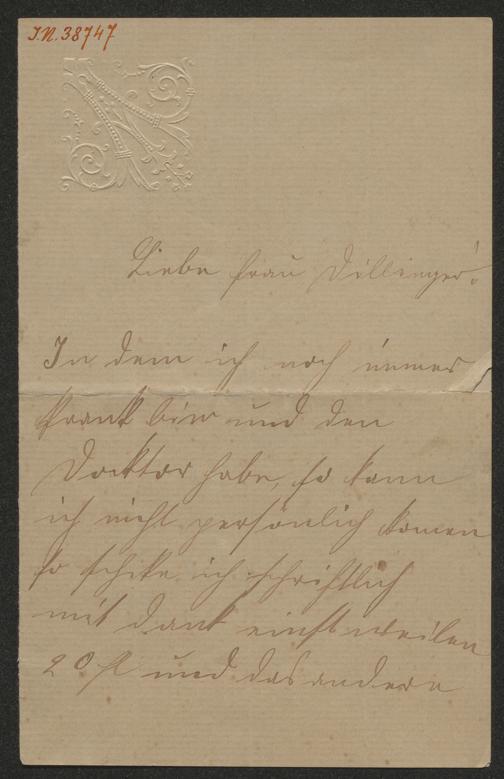 I.N. 38747
Liebe Frau Döllinger!
In dem ich noch immer
krank bin und den
Docktor habe, so kann
ich nicht persönlich komen
so schike ich schriftlich
mit dank einstweilen
20 fl und das andere